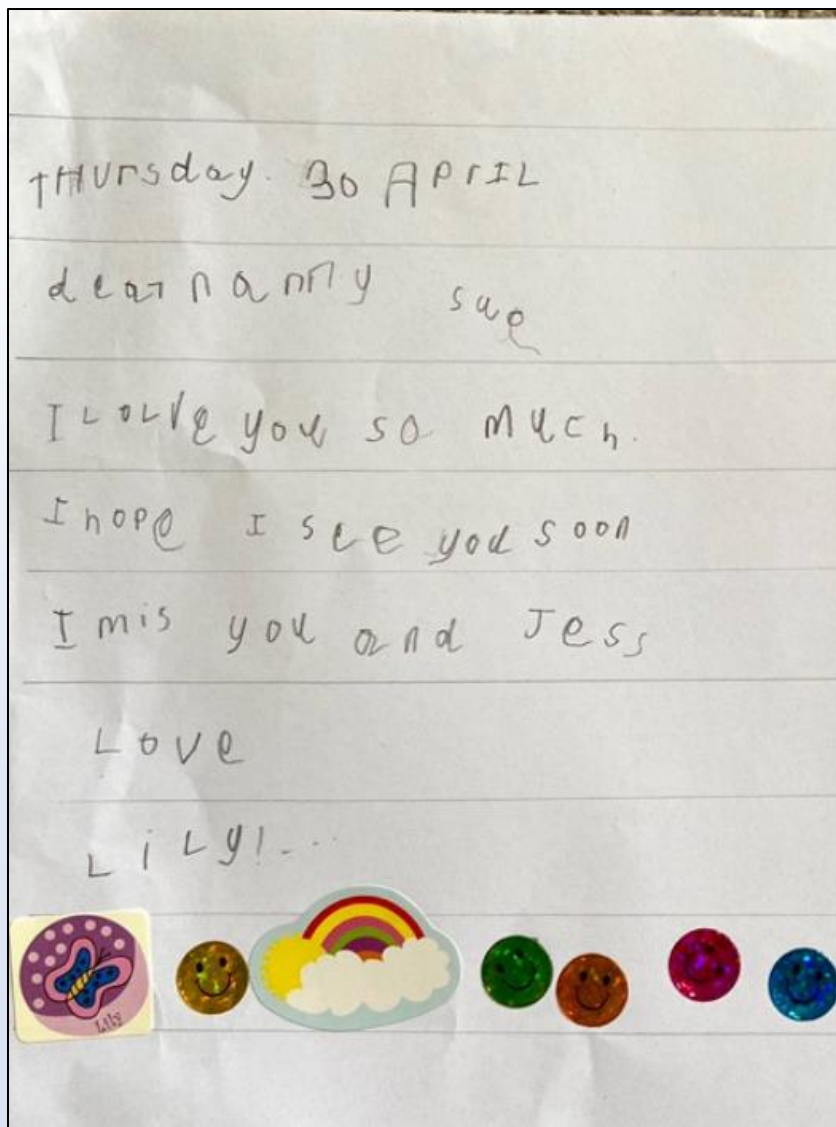 tHursday. 30 APrIL
dear nanny sue
I LoLve you so much.
I hope I see you soon
I mis you and Jess
Love
LiLy!...
Lily